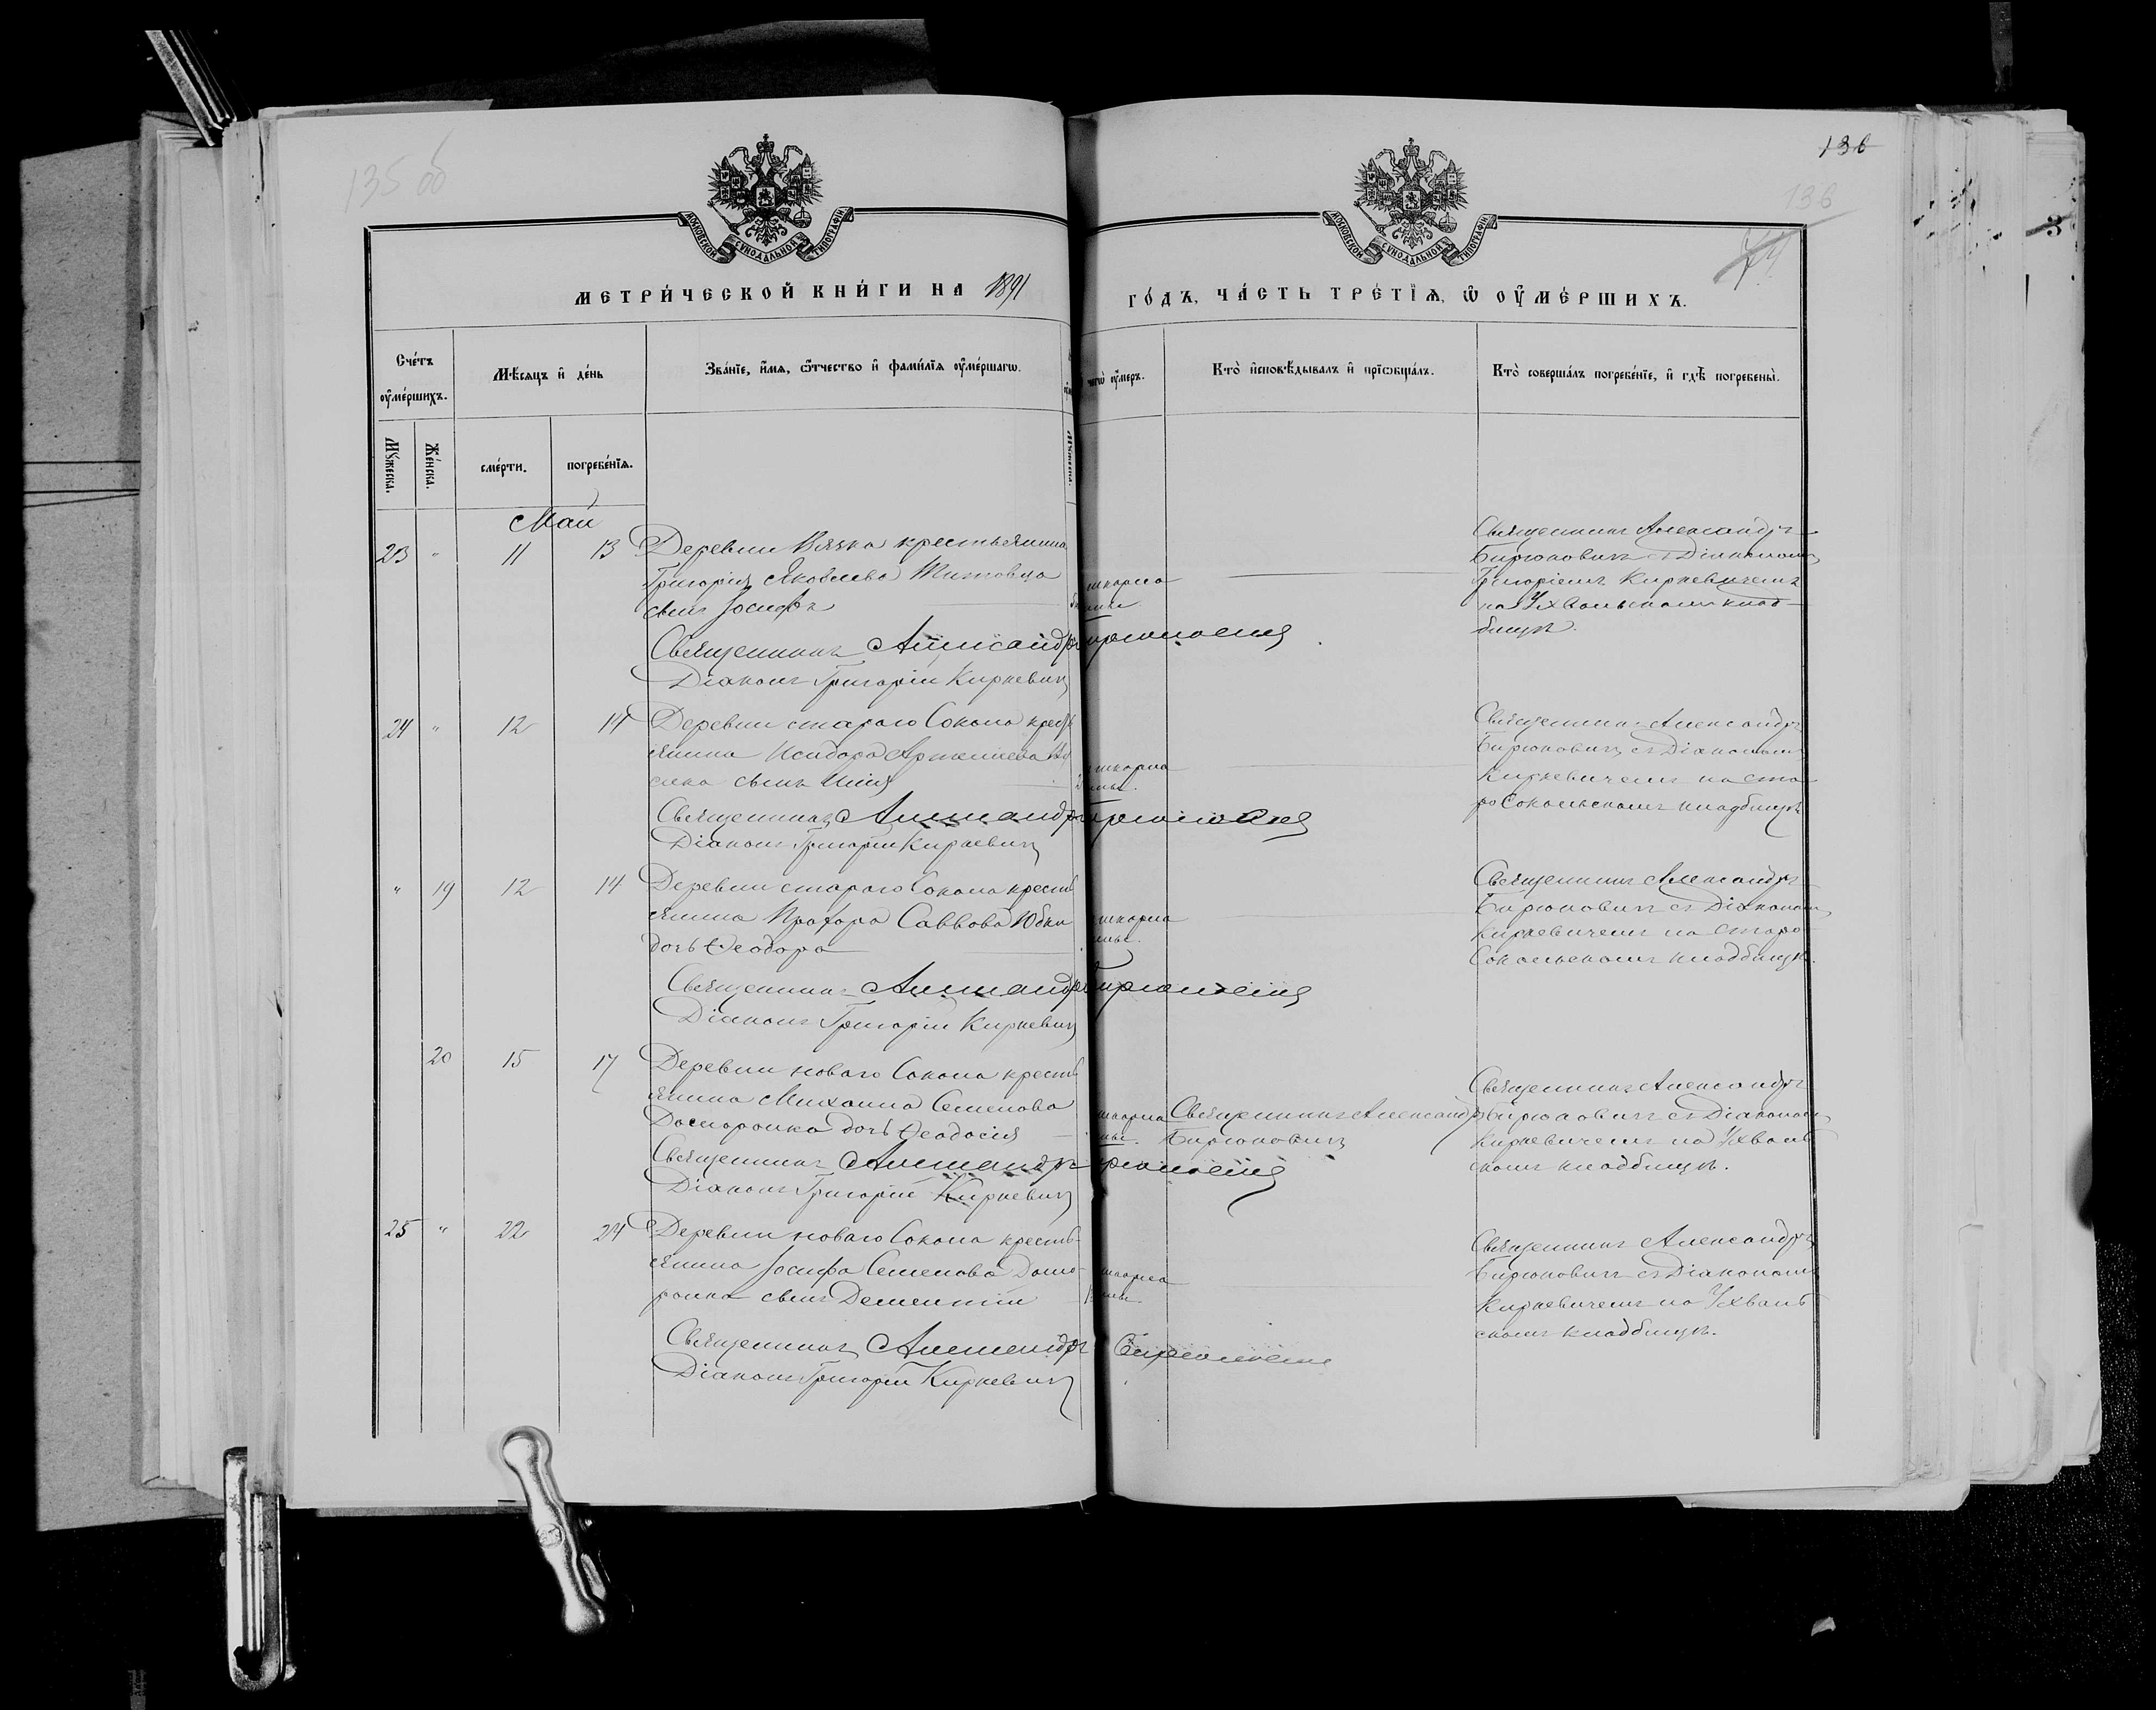 135 об
136
136
МОСКОВСКОЙ СУНОДАЛЬНОЙ ТИПОГРАФІИ
МОСКОВСКОЙ СУНОДАЛЬНОЙ ТИПОГРАФІИ
МЕТРИ́ЧЕСКОЙ КНИ́ГИ НА 1891
ГО́ДЪ, ЧА́СТЬ ТРЕ́ТІЯ, Ѡ ОУМЕ́РШИХЪ.
Сче́тъ оумершихъ.
Мѣсяцъ и де́нь
Зва́ніе, и́мя, ѿтчество и фами́лія оуме́ршагѡ.
чегѡ̀ оумеръ.
Кто̀ исповѣдывалъ и пріобща́лъ.
Кто̀ соверша́лъ погребе́ніе, и гдѣ̀ погребены̀.
Мꙋжеска.
Же́нска.
сме́рти.
погребе́нія.
Май
23 " 11 13 Деревни Вязка крестьянина
Григорія Яковлева
сынъ Іосифъ
Священникъ Александръ Бирюковичъ
Діаконъ Григорій Киркевичъ
Священникъ Александръ
Бирюковичъ съ Діакономъ
Григоріемъ Киркевичемъ
на Ухвальскомъ клад-
бищѣ.
24 " 12 14 Деревни стараго Сокола кресть
янина Исидора Артемьева
сынъ Илія
Священникъ Александръ Бирюковичъ
Діаконъ Григорій Киркевичъ
Священникъ Александръ
Бирюковичъ съ Діакономъ
Киркевичемъ на Ста
роСокольскомъ кладбищѣ
" 19 12 14 Деревни стараго Сокола кресть
янина Прохора Саввова Юбки
дочь Ѳеодора
Священникъ Александръ Бирюковичъ
Діаконъ Григорій Киркевичъ
Священникъ Александръ
Бирюковичъ съ Діакономъ
Киркевичемъ на Старо
Сокольскомъ кладбищѣ.
20 15 17 Деревни новаго Сокола кресть
янина Михаила Семенова
дочь Ѳеодосія
Священникъ Александръ
Бирюковичъ
Священникъ Александръ Бирюковичъ
Діаконъ Григорій Киркевичъ
Священникъ Александръ
Бирюковичъ съ Діакономъ
Киркевичемъ на Ухваль
скомъ кладбищѣ.
25 " 22 24 Деревни новаго Сокола кресть-
янина Іосифа Семенова
сынъ Дементій
Священникъ Александръ Бирюковичъ
Діаконъ Григорій Киркевичъ
Священникъ Александръ
Бирюковичъ съ Діакономъ
Киркевичемъ на Ухваль
скомъ кладбищѣ.